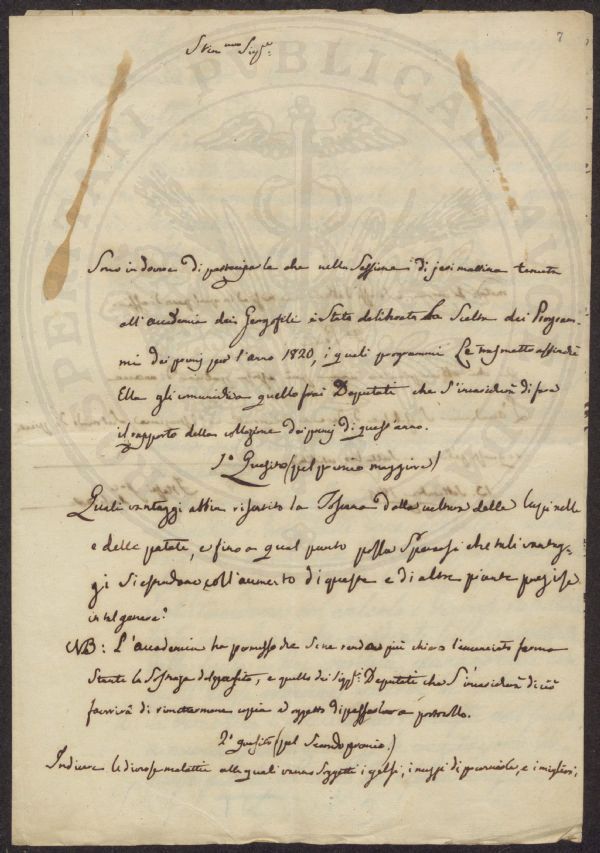 7
Stim.mo Sig.re
PERITATI PUBLICAE AUG
Sono in dovere di parteciparle che nella Sessione di jeri mattina tenuta
all'accademia dei Georgofili è stata deliberata la Scelta dei Program-
mi dei premj per l'anno 1820, i quali programmi Le trasmetto affinchè
Ella gli comunichi a quello frai Deputati che s'incaricherà di fare
il rapporto della collazione dei premj di quest'anno.
1.o Quesito (pel premio maggiore)
Quali vantaggi abbia risentito la Toscana dalla cultura della lupinella
e delle patate, e fino a qual punto possa sperarsi che tali vantag-
gi si estendano coll'aumento di queste e di altre piante preziose
in tal genere?
NB: L'accademia ha permesso che se ne renda più chiara l'enunciata forma
stante la del quesito, e quello dei Sigg.i Deputati che s'incaricherà di ciò
favorirà di rimettermene copia ad oggetto di passarla a protocollo.
2.o quesito (pel Secondo premio.)
Indicare le diverse malattie alle quali vanno soggetti i gelsi, i mezzi di prevenirle, e i migliori,